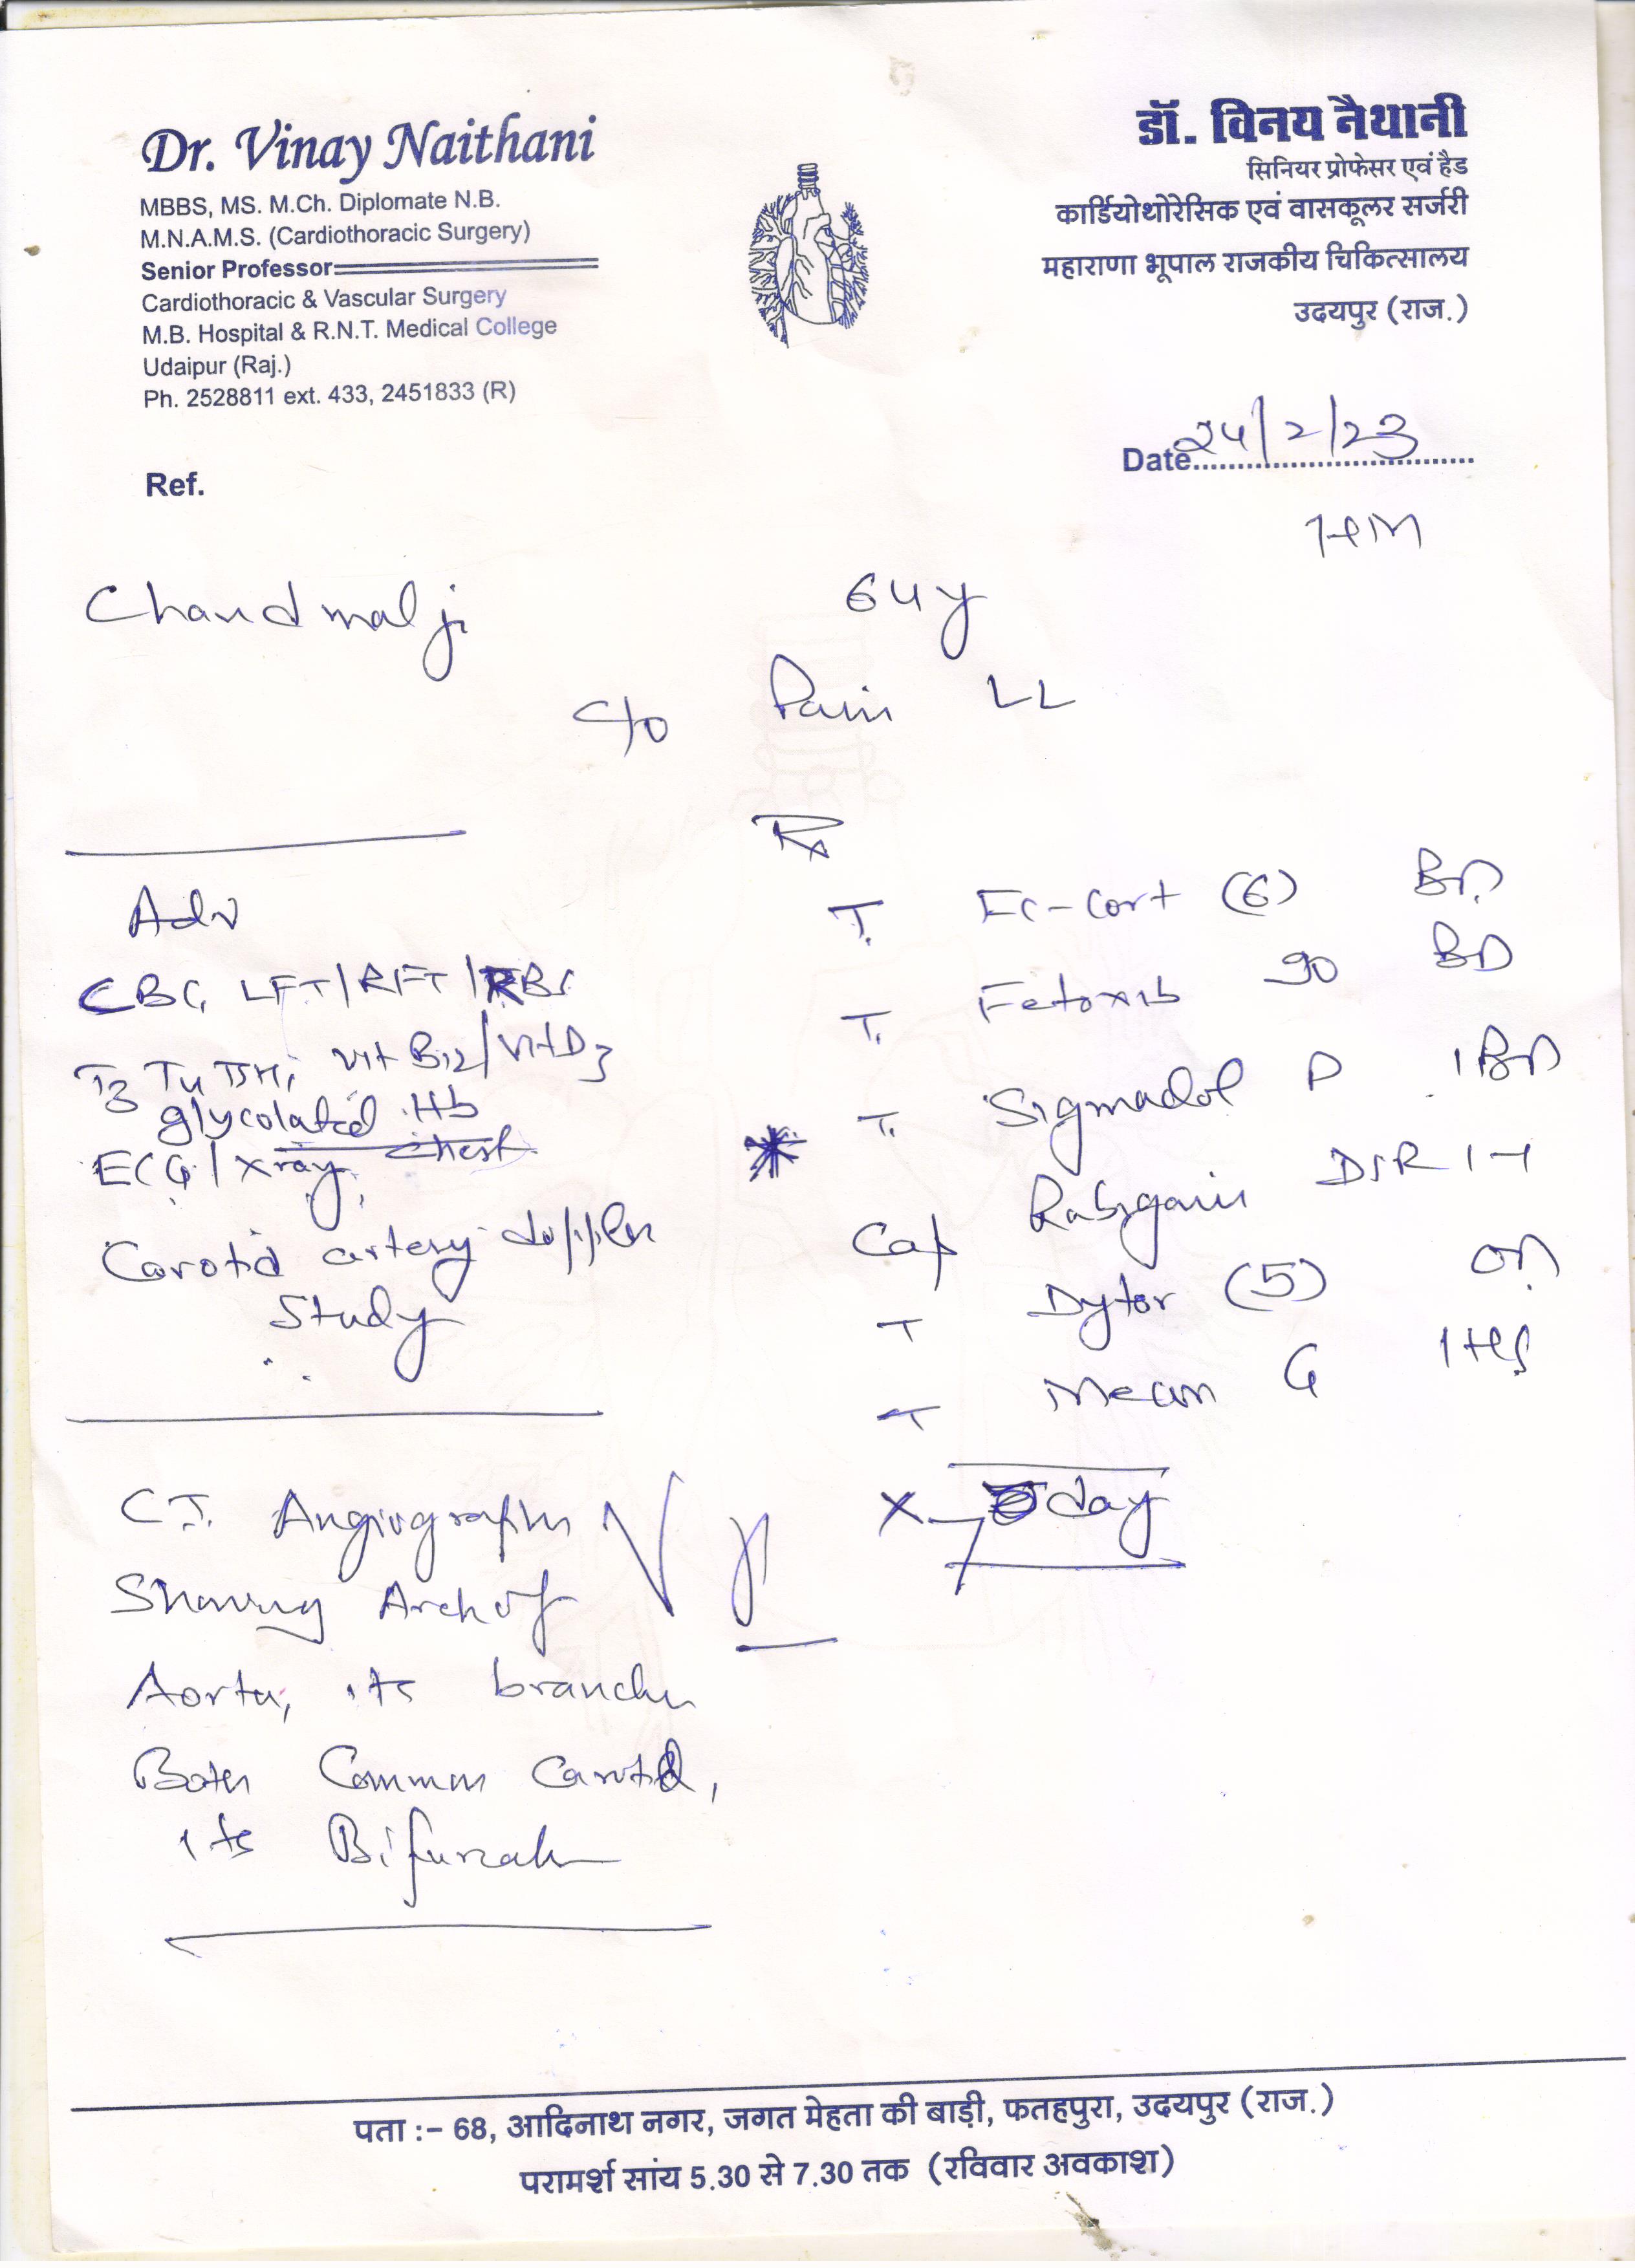 Dr. Vinay Naithani
MBBS, MS. M.Ch. Diplomate N.B.
M.N.A.M.S. (Cardiothoracic Surgery)
Senior Professor
Cardiothoracic & Vascular Surgery
M.B. Hospital & R.N.T. Medical College
Udaipur (Raj.)
Ph. 2528811 ext. 433, 2451833 (R)
डॉ. विनय नैथानी
सिनियर प्रोफेसर एवं हैड
कार्डियोथोरेसिक एवं वासकूलर सर्जरी
महाराणा भूपाल राजकीय चिकित्सालय
उदयपुर (राज.)
Date 24/2/23
Ref.
Chandmal ji 64y
c/o Pain LL
Adv
CBC, LFT/RFT/RBS
T3 T4 TSH, Vit B12/Vit D3
glycolated Hb
ECG/Xray chest
Carotid artery doppler
Study
C.T. Angiography
Showing Arch of
Aorta, its branches
Both Common Carotid,
its Bifurcatn
Rx
T. Ec-Cort (6) BD
T. Fetoxib 90 BD
T. Sigmadol P 1 BD
Cap Rabigain DSR 1-1
T Dytor (5) OD
T G 1 HS
X 7 day
पता :– 68, आदिनाथ नगर, जगत मेहता की बाड़ी, फतहपुरा, उदयपुर (राज.)
परामर्श सांय 5.30 से 7.30 तक (रविवार अवकाश)